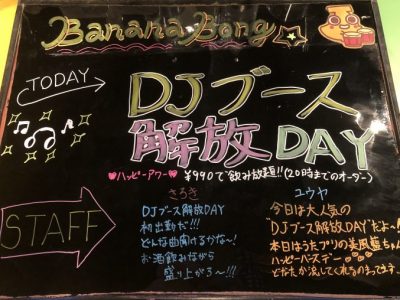 Banana Bong
TODAY
DJブース
解放DAY
ハッピーアワー
¥990で飲み放題!!(20時までのオーダー)
STAFF
さろき
DJブース解放DAY
初出勤だ!!!
どんな曲聞けるかな〜!
お酒飲みながら
盛り上がろ〜!!!
ユウヤ
今日は大人気の
"DJブース解放DAY"だよ〜!!
本日はうたプリの美風藍ちゃん
ハッピーバースデー
どなたか流してくれるのまってます